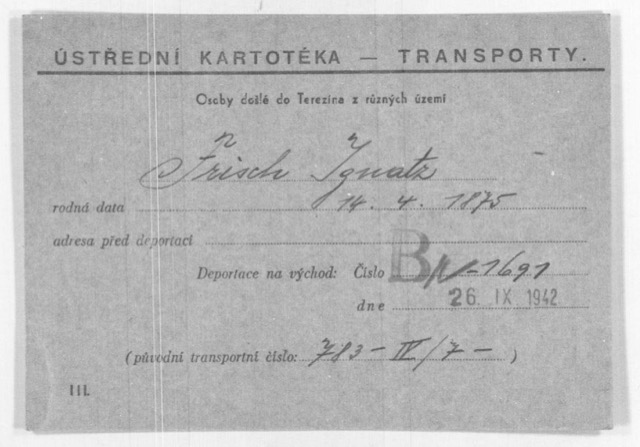 ÚSTŘEDNÍ KARTOTÉKA — TRANSPORTY.
Osoby došlé do Terezína z různých území
Frisch Ignatz
rodná data 14. 4. 1875
adresa před deportací
Deportace na východ: Číslo Br-1691
dne 26. IX 1942
(původní transportní číslo: 783-IV/7- )
III.